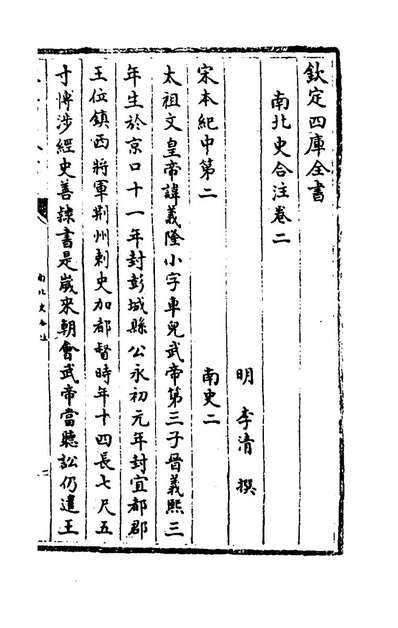 欽定四庫全書
南北史合注卷二
明 李清 撰
宋本紀中第二 南史二
太祖文皇帝諱義隆小字車兒武帝第三子晉義熙三
年生於京口十一年封彭城縣公永初元年封宜都郡
王位鎮西將軍荆州刺史加都督時年十四長七尺五
寸博涉經史善隸書是嵗來朝會武帝當聽訟仍遣王
南北史合注